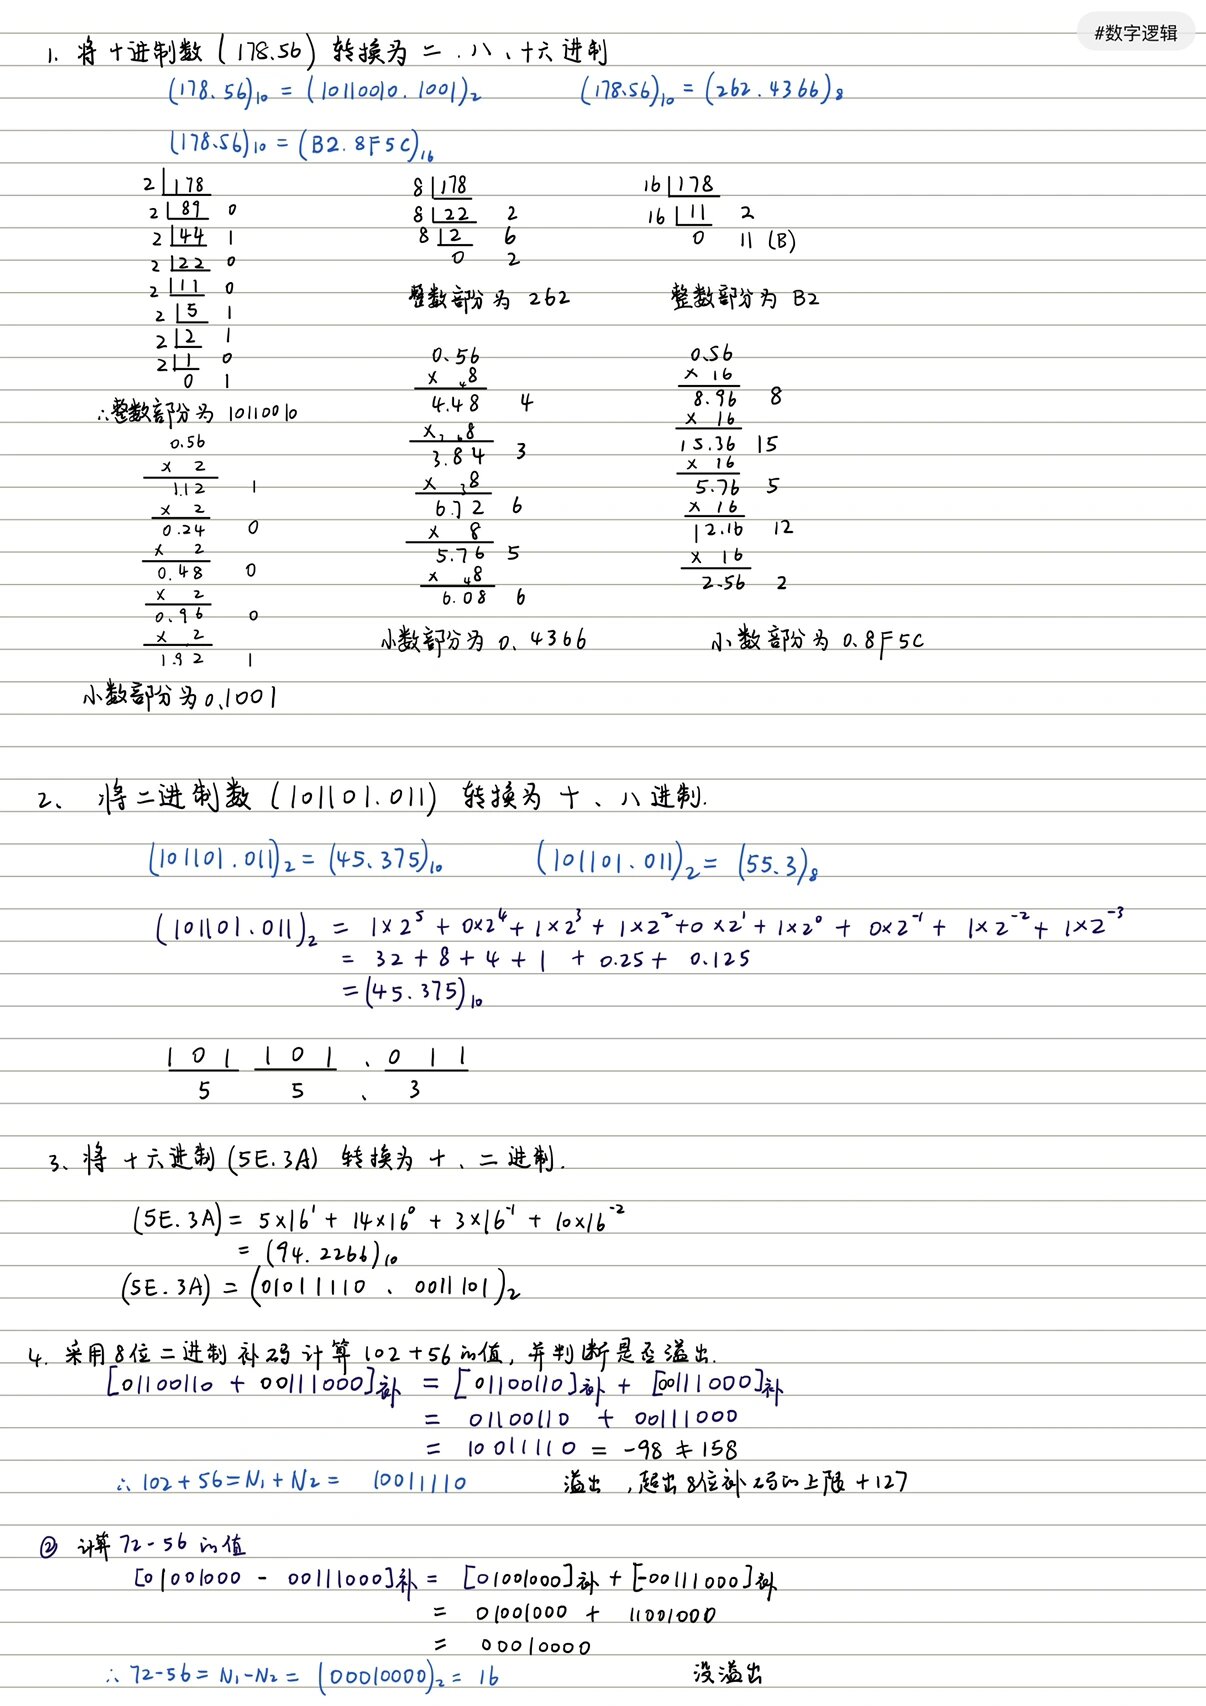 #数字逻辑
1. 将十进制数(178.56)转换为二.八、十六进制
(178.56)₁₀ = (10110010.1001)₂ (178.56)₁₀ = (262.4366)₈
(178.56)₁₀ = (B2.8F5C)₁₆
2 178
2 89 0
2 44 1
2 22 0
2 11 0
2 5 1
2 2 1
2 1 0
0 1
∴整数部分为 10110010
0.56
× 2
1.12 1
× 2
0.24 0
× 2
0.48 0
× 2
0.96 0
× 2
1.92 1
小数部分为0.1001
8 178
8 22 2
8 2 6
0 2
整数部分为 262
0.56
× 8
4.48 4
× 8
3.84 3
× 8
6.72 6
× 8
5.76 5
× 8
6.08 6
小数部分为 0.4366
16 178
16 11 2
0 11 (B)
整数部分为 B2
0.56
× 16
8.96 8
× 16
15.36 15
× 16
5.76 5
× 16
12.16 12
× 16
2.56 2
小数部分为 0.8F5C
2、将二进制数(101101.011)转换为十、八进制.
(101101.011)₂ = (45.375)₁₀ (101101.011)₂ = (55.3)₈
(101101.011)₂ = 1×2⁵ + 0×2⁴ + 1×2³ + 1×2² + 0×2¹ + 1×2⁰ + 0×2⁻¹ + 1×2⁻² + 1×2⁻³
= 32 + 8 + 4 + 1 + 0.25 + 0.125
= (45.375)₁₀
1 0 1 1 0 1 . 0 1 1
5 5 . 3
3、将十六进制(5E.3A)转换为十、二进制.
(5E.3A) = 5×16¹ + 14×16⁰ + 3×16⁻¹ + 10×16⁻²
= (94.2266)₁₀
(5E.3A) = (01011110 . 0011101)₂
4. 采用8位二进制补码计算102+56的值,并判断是否溢出.
[01100110 + 00111000]补 = [01100110]补 + [00111000]补
= 01100110 + 00111000
= 10011110 = -98 ≠ 158
∴ 102+56=N₁+N₂= 10011110 溢出,超出8位补码的上限+127
② 计算72-56的值
[01001000 - 00111000]补 = [01001000]补 + [-00111000]补
= 01001000 + 11001000
= 00010000
∴ 72-56= N₁-N₂ = (00010000)₂ = 16 没溢出